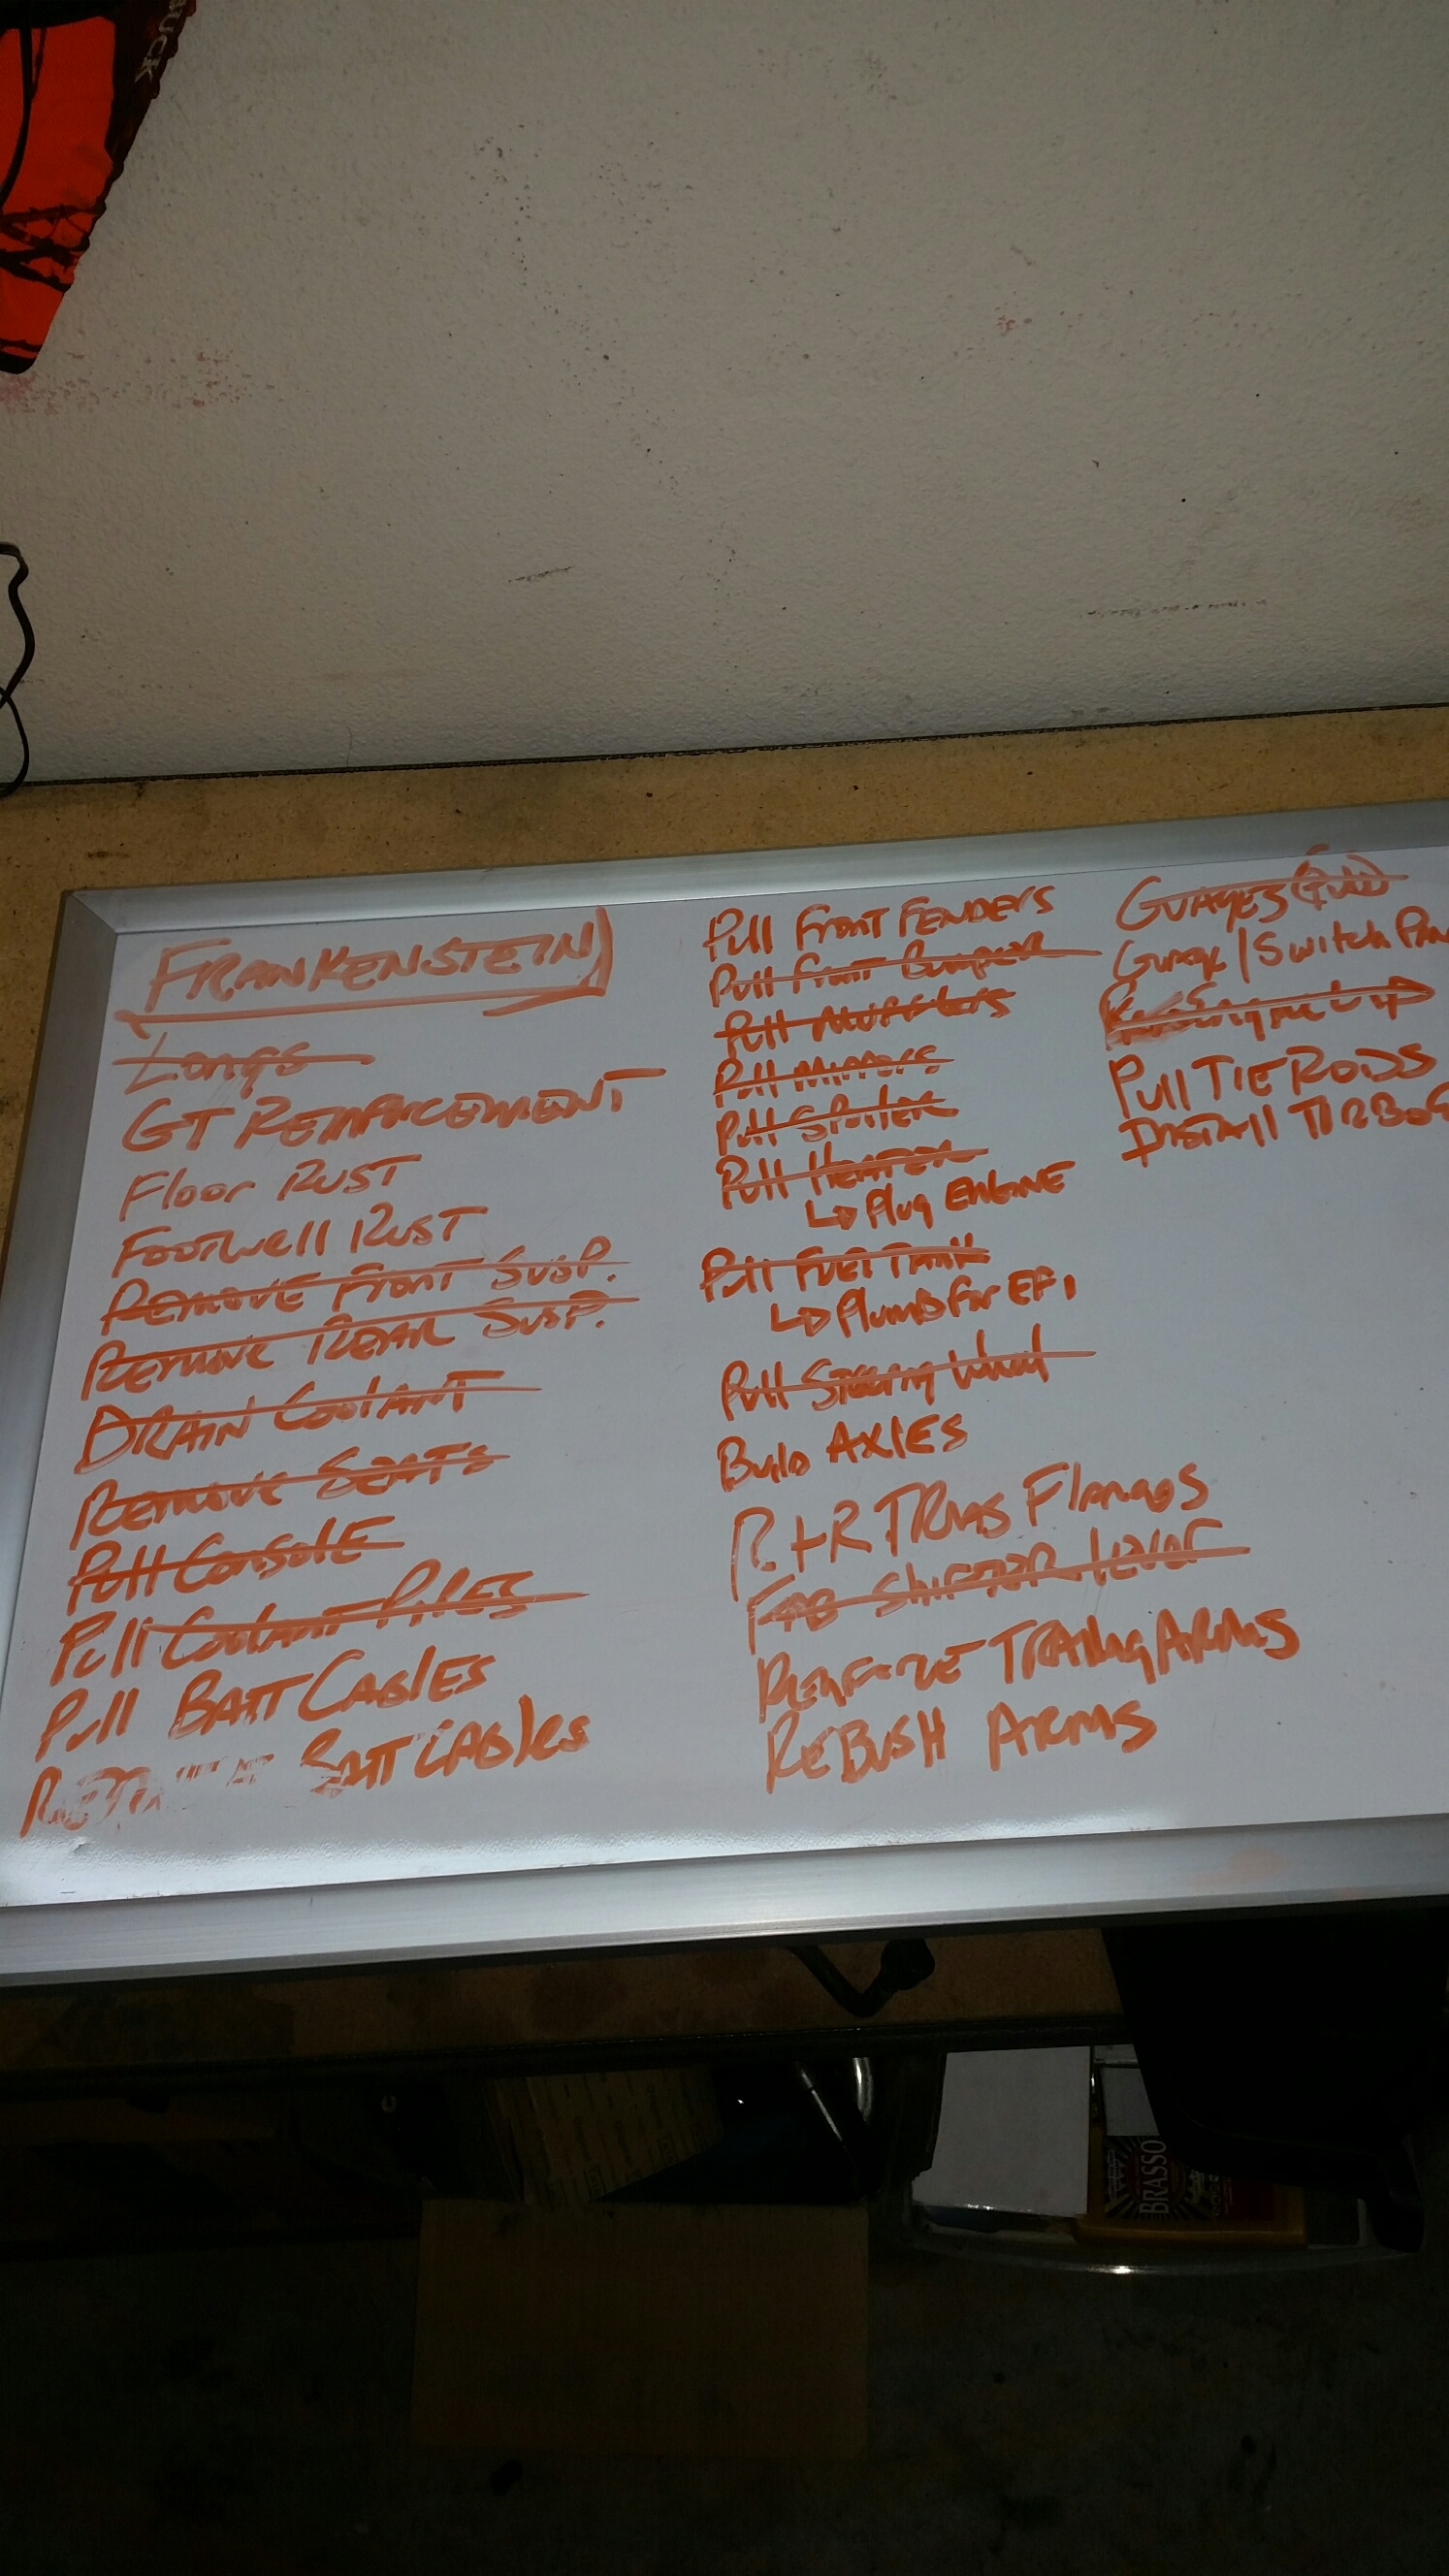 FRANKENSTEIN
Longs
GT REINFARCEMENT
Floor RUST
Footwell RUST
REMOVE FRONT SUSP.
REMOVE REAR SUSP.
DRAIN COOLANT
REMOVE SEATS
Pull CONSOLE
Pull Coolant PIPES
Pull BATT CABLES
BATT CABlES
Pull Front FENDERS
Pull Front Bumper
Pull Mufflers
Pull Mirrors
Pull Spoiler
Pull HEATER
Plug ENGINE
Pull FUEl TANK
Plumb for EFI
Pull Steering Wheel
Build AXlES
R+R TRANS Flanges
FAB SHIFTER lever
TRAIlINg ARMS
REBUSH ARMS
GUAGES
/Switch PAN
Pull TIE RODS
INSTAll
BUCK
BRASSO